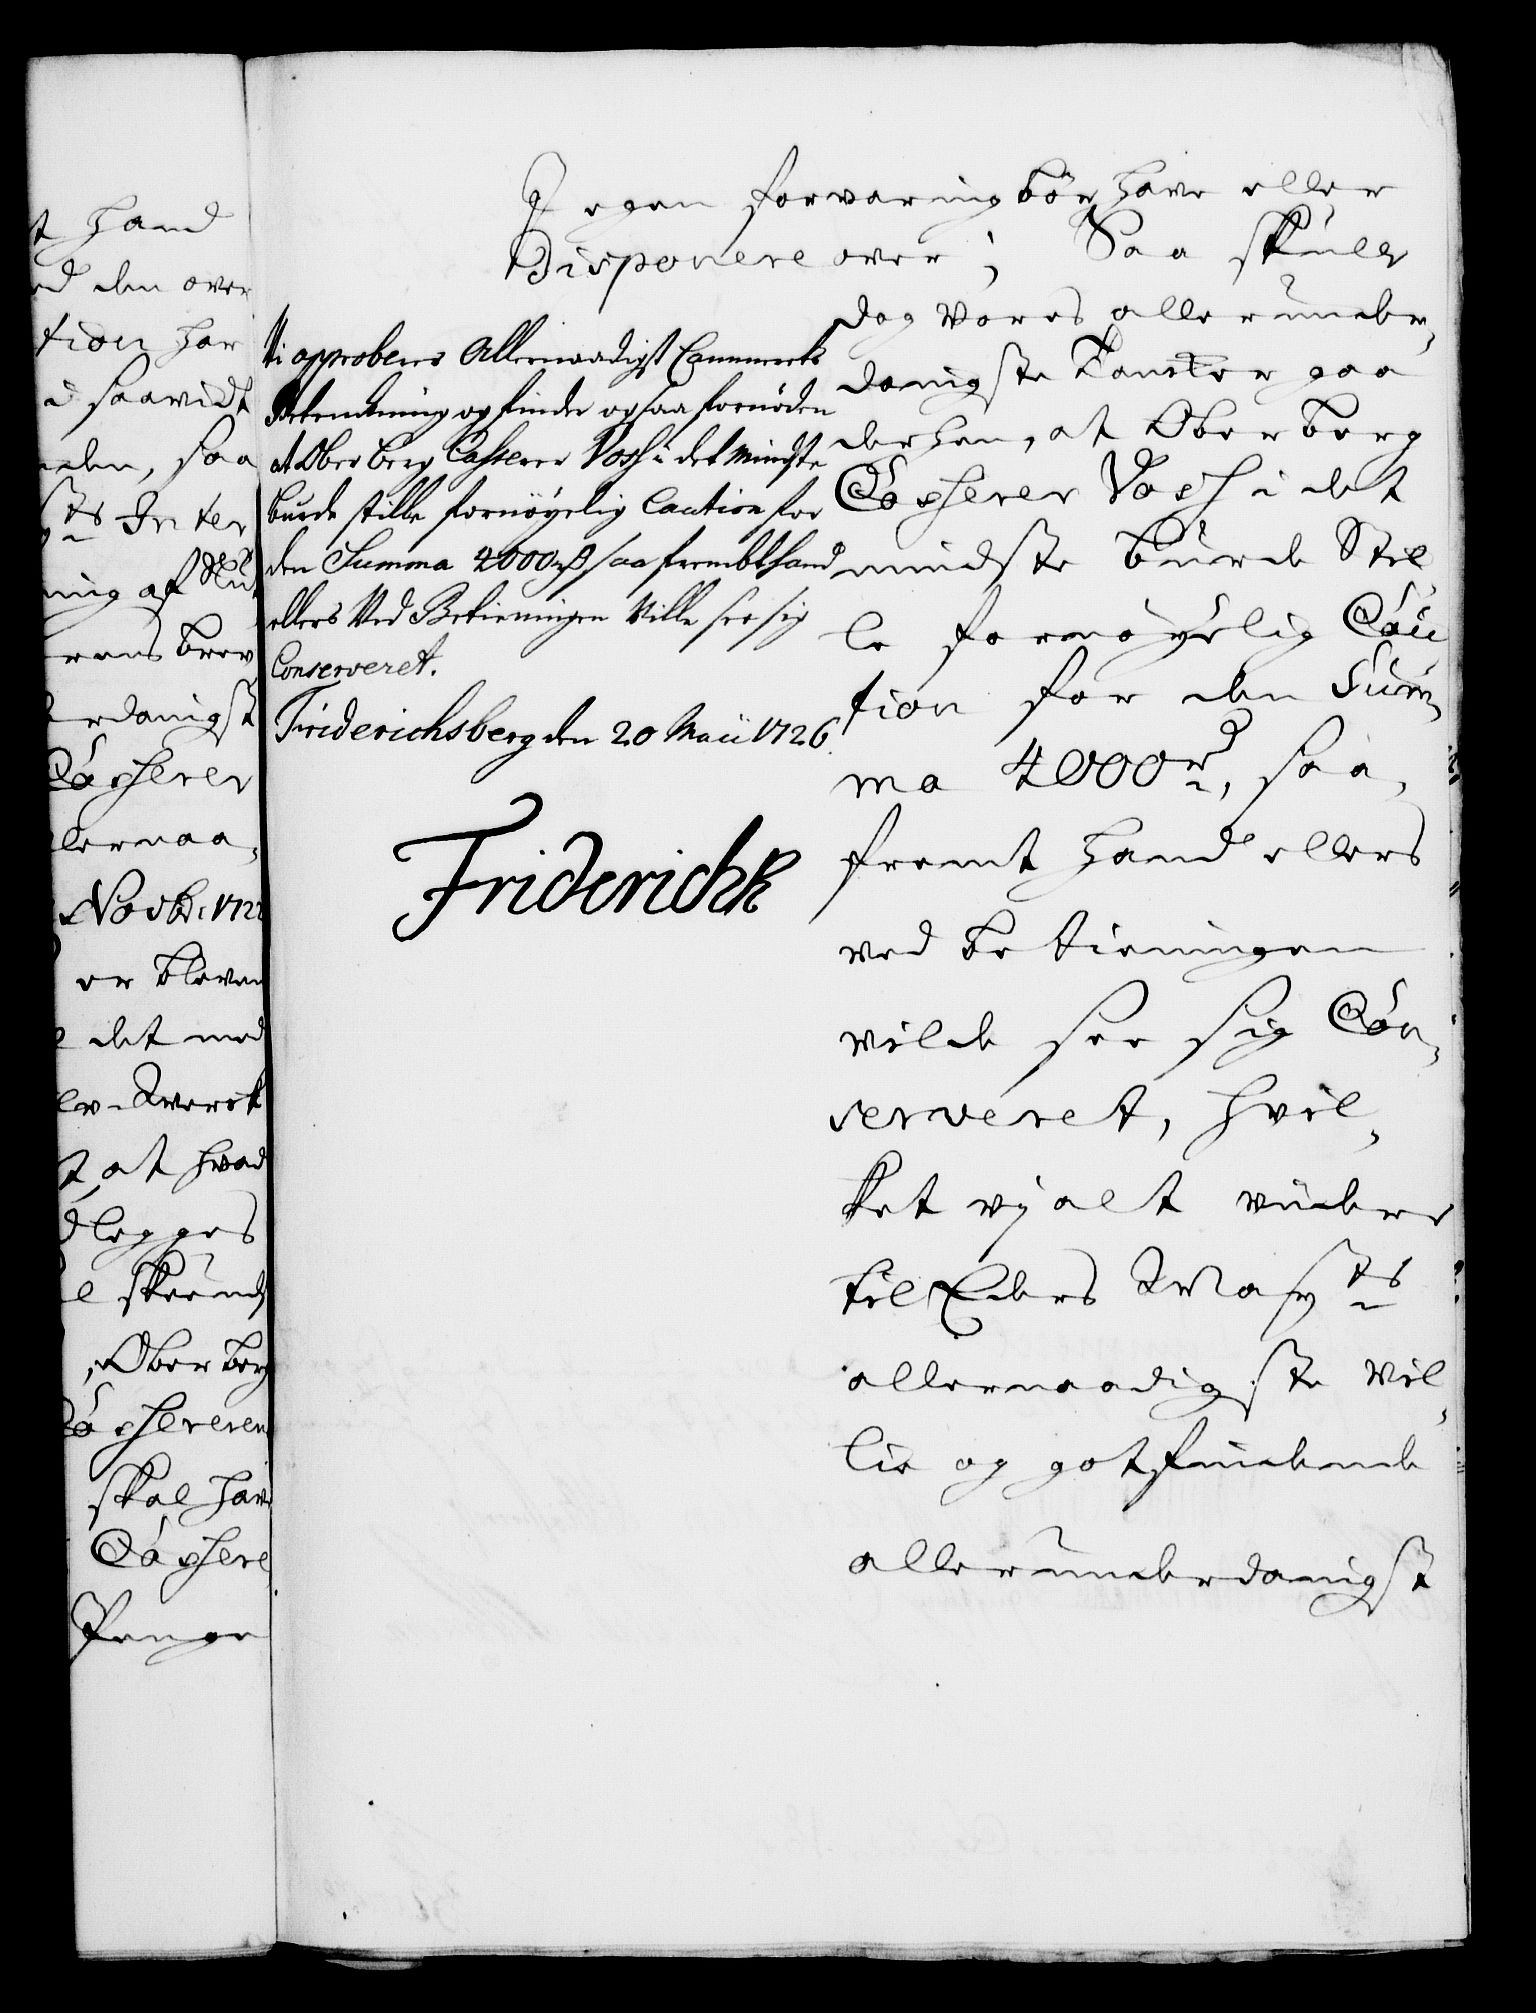 t hand
ed den over
tion har
d saavidt
den, saa
ts Inter
ning af
rens brev
erdanigst
Casserer
lernaa-
Novbr: 1722
er bleven
det med
Sølv-Werck
t, at hvad
dlegges
l skeende
, Ober berg
Cassereren
skal have
Cassere
Penge
I egen forvaring bör have eller
Disponere over; Saa skulle
dog vores allerunder-
danigste Tancker gaa
derhen, at Ober berg
Casserer Vosh i det
mindste burde Stil-
le fornøyelig Cau-
tion for den Sum-
ma 4000 rd, saa-
fremt hand ellers
ved betieningen
vilde see sig Con-
serveret, hvil-
ket vj alt under
til Eders Mayts
allernaadigste vil-
lie og gotfindende
allerunderdanigst
Vi approberer Allernaadigst Cammerets
Betenckning og finder ogsaa fornøden
at Ober berg Casserer Vosh i det mindste
burde stille fornöyelig Caution for
den Summa 4000 rd saa frembt hand
ellers Ved Betieningen Ville see sig
Conserveret.
Friderichsberg den 20 Maii 1726.
Friderich R